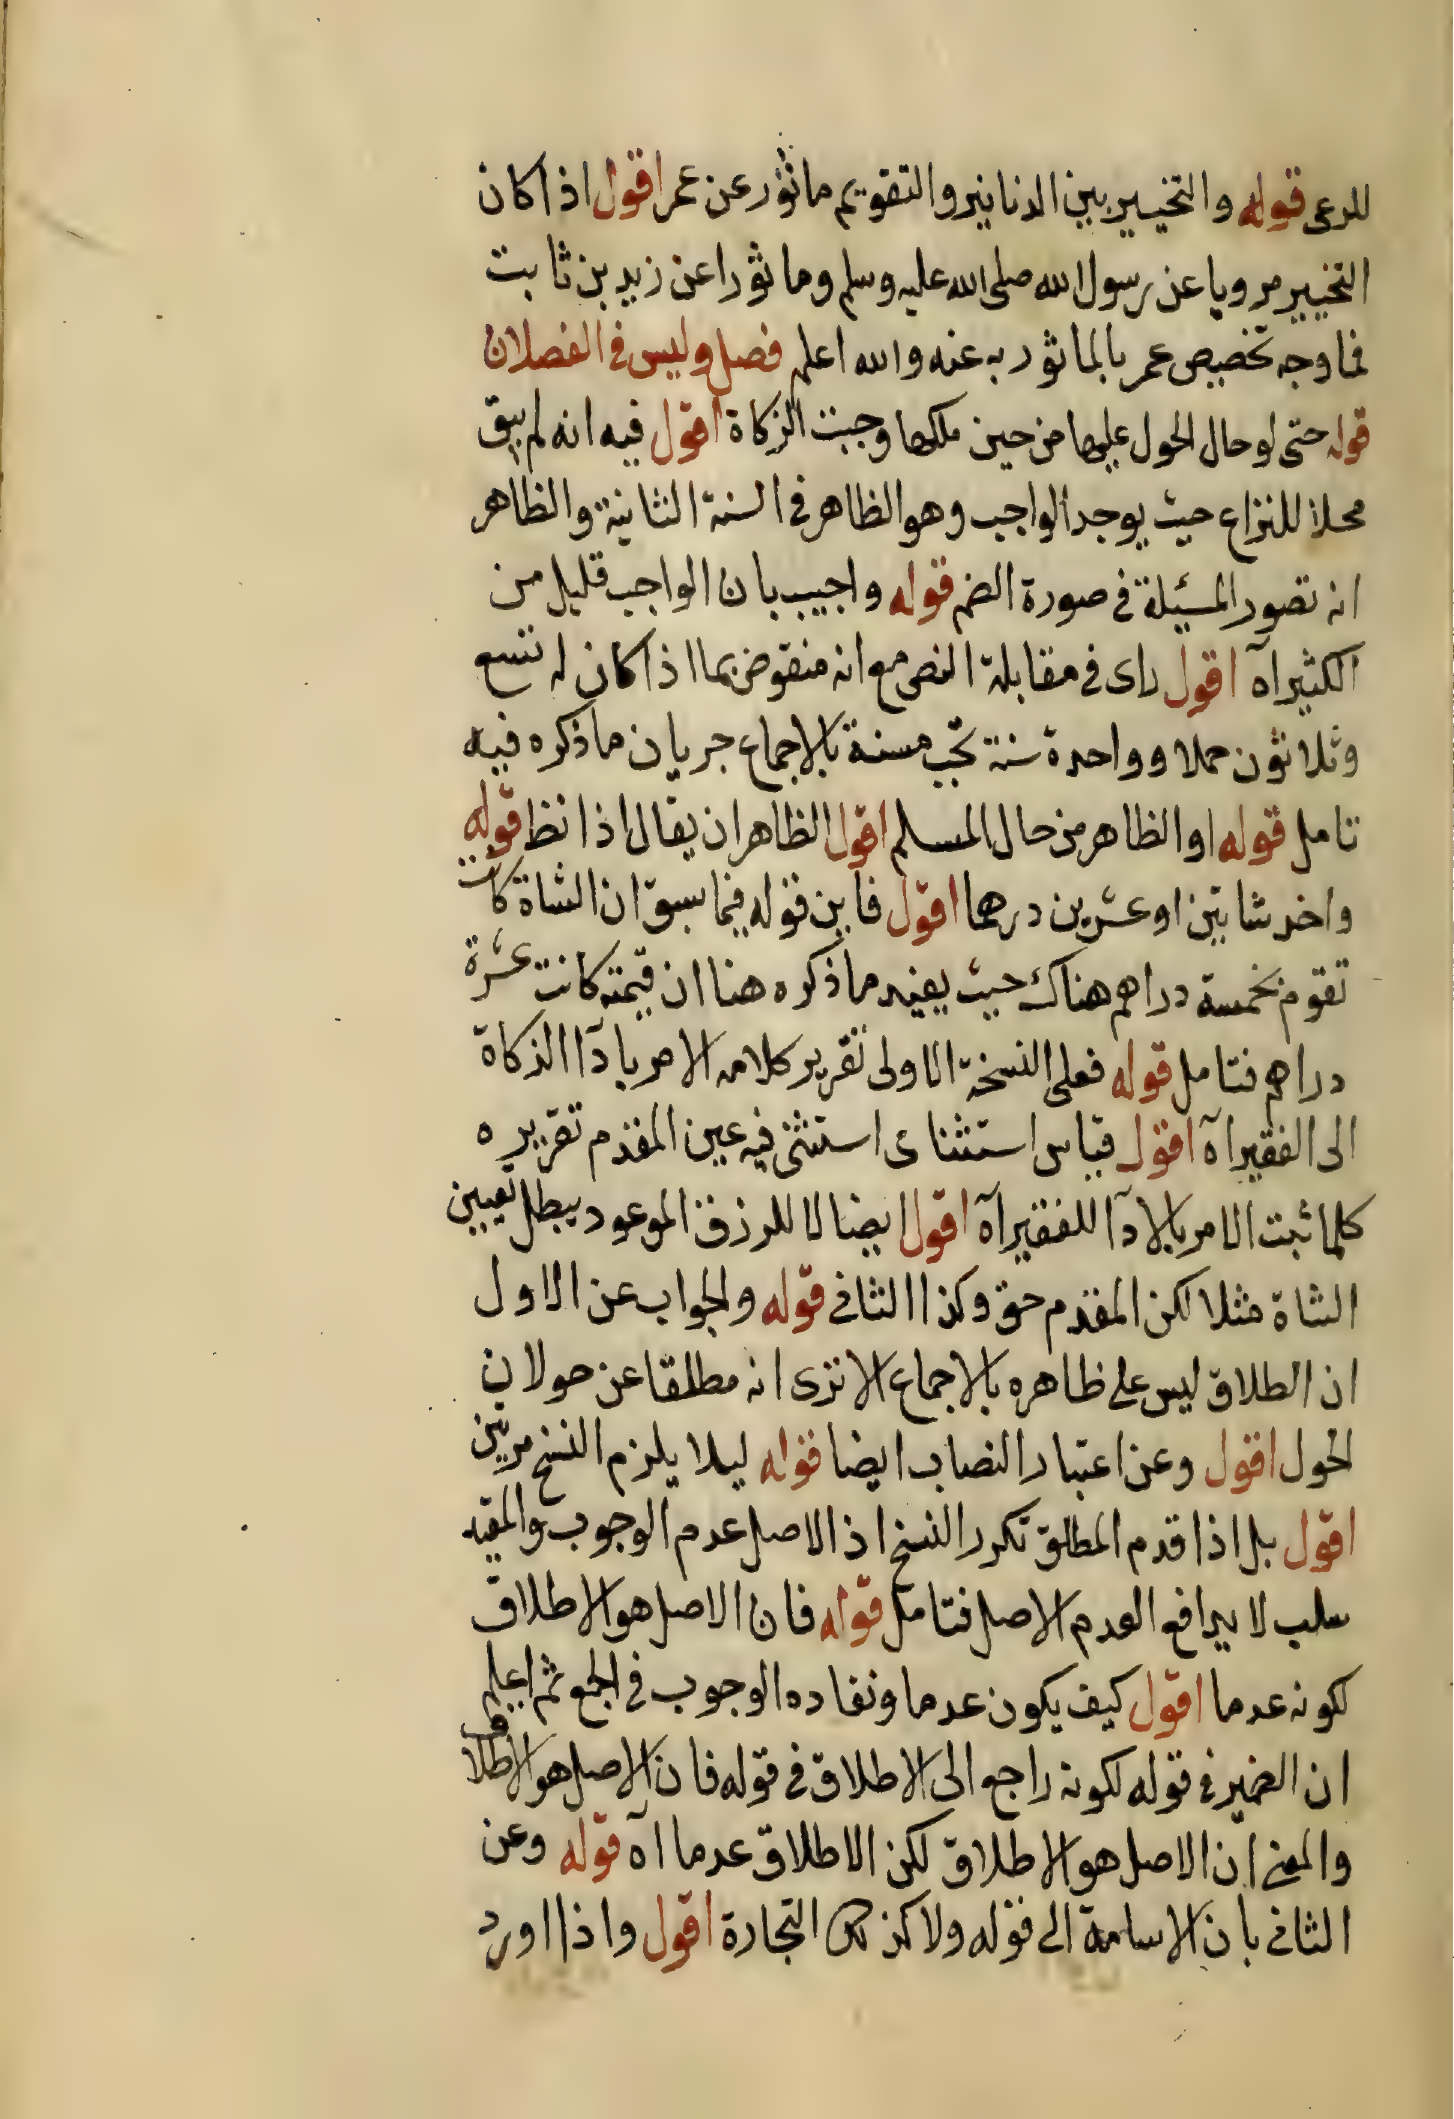 للرعى قوله والتخيير بين الدنانير والتقويم ماثور عن عمر اقول اذا كان
التخيير مرويا عن رسول الله صلى الله عليه وسلم وماثورا عن زيد بن ثابت
فما وجه تخصيص عمر بالماثورية عنه والله اعلم فصل وليس فى الفصلان
قوله حتى لو حال الحول عليها من حين ملكها وجبت الزكاة اقول فيه انه لم يبق
محلا للنزاع حيث يوجد الواجب وهو الظاهر فى السنة الثانية والظاهر
انه تصور المسئلة فى صورة الضم قوله واجيب بان الواجب قليل من
الكثير اه اقول راى فى مقابلة النص مع انه منقوض بما اذا كان له تسع
وثلاثون حملا وواحدة سنة تجب مسنة بالاجماع جريان ما ذكره فيه
تامل قوله او الظاهر من حال المسلم اقول الظاهر ان يقال اذا نظ قوله
واخد شاتين او عشرين درهما اقول فاين قوله فيما سبق ان الشاة كانت
تقوم بخمسة دراهم هناك حيث يفيد ما ذكره هنا ان قيمته كانت عشرة
دراهم فتامل قوله فعلى النسخة الاولى تقرير كلامه الامر بادآ الزكاة
الى الفقير اه اقول قياس استثناى استثنى فيه عين المقدم تقريره
كلما ثبت الامر بالادآ للفقير اه اقول ايضالا للرزق الموعود يبطل تعيين
الشاة مثلا لكن المقدم حق وكذا الثانى قوله والجواب عن الاول
ان الطلاق ليس على ظاهره بالاجماع الا ترى انه مطلقا عن حولان
الحول اقول وعن اعتبار النصاب ايضا قوله ليلا يلزم النسخ مرتين
اقول بل اذا قدم المطلق تكرر النسخ اذ الاصل عدم الوجوب والمقيد
سلب لا يرافع العدم الاصل فتامل قوله فان الاصل هو الاطلاق
لكونه عدما اقول كيف يكون عدما ونفاده الوجوب فى الجمع ثم اعلم
ان الضمير فى قوله لكونه راجع الى الاطلاق فى قوله فان الاصل هو الاطلاق
والمعنى ان الاصل هو الاطلاق لكن الاطلاق عدما اه قوله وعن
الثانى بان الاسامة الى قوله ولا كذلك التجارة اقول واذا اورد